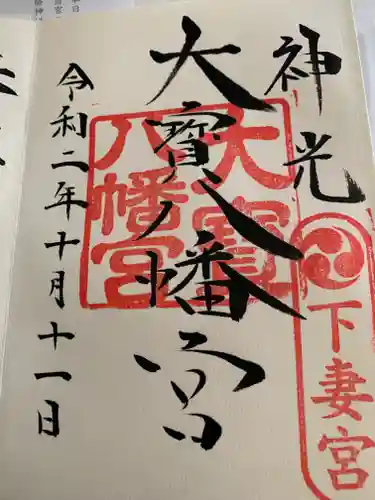 神光
大寶八幡宮
令和二年十月十一日
大寶
八幡宮
下妻宮